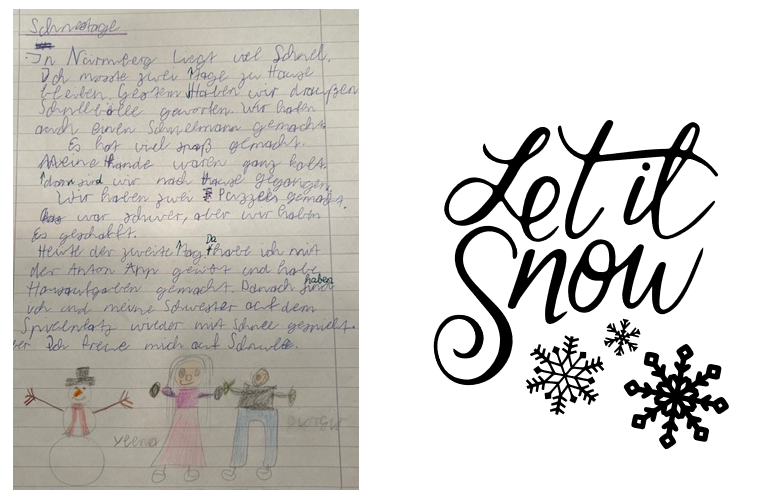 Schneetage
In Nürnberg liegt viel Schnee.
Ich musste zwei Tage zu Hause
bleiben. Gestern Haben wir draußen
Schneebälle geworfen. Wir haben
auch einen Schneemann gemacht.
Es hat viel spaß gemacht.
Meine Hände waren ganz kalt.
dann sind wir nach Hause gegangen.
Wir haben zwei Puzzels gemacht.
das war schwer, aber wir haben
Es geschafft.
Heute der zweite Tag Da habe ich mit
der Anton App geübt und habe
Hausaufgaben gemacht. Danach haben
ich und meine Schwester auf dem
Spielplatz wieder mit Schnee gespielt.
Ich freue mich auf Schule.
Let it
Snow